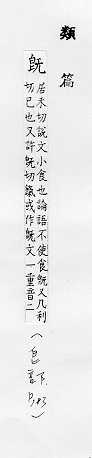 類
篇
旣
居未切說文小食也論語不使食旣又几利
切已也又許旣切或作旣文一重音二